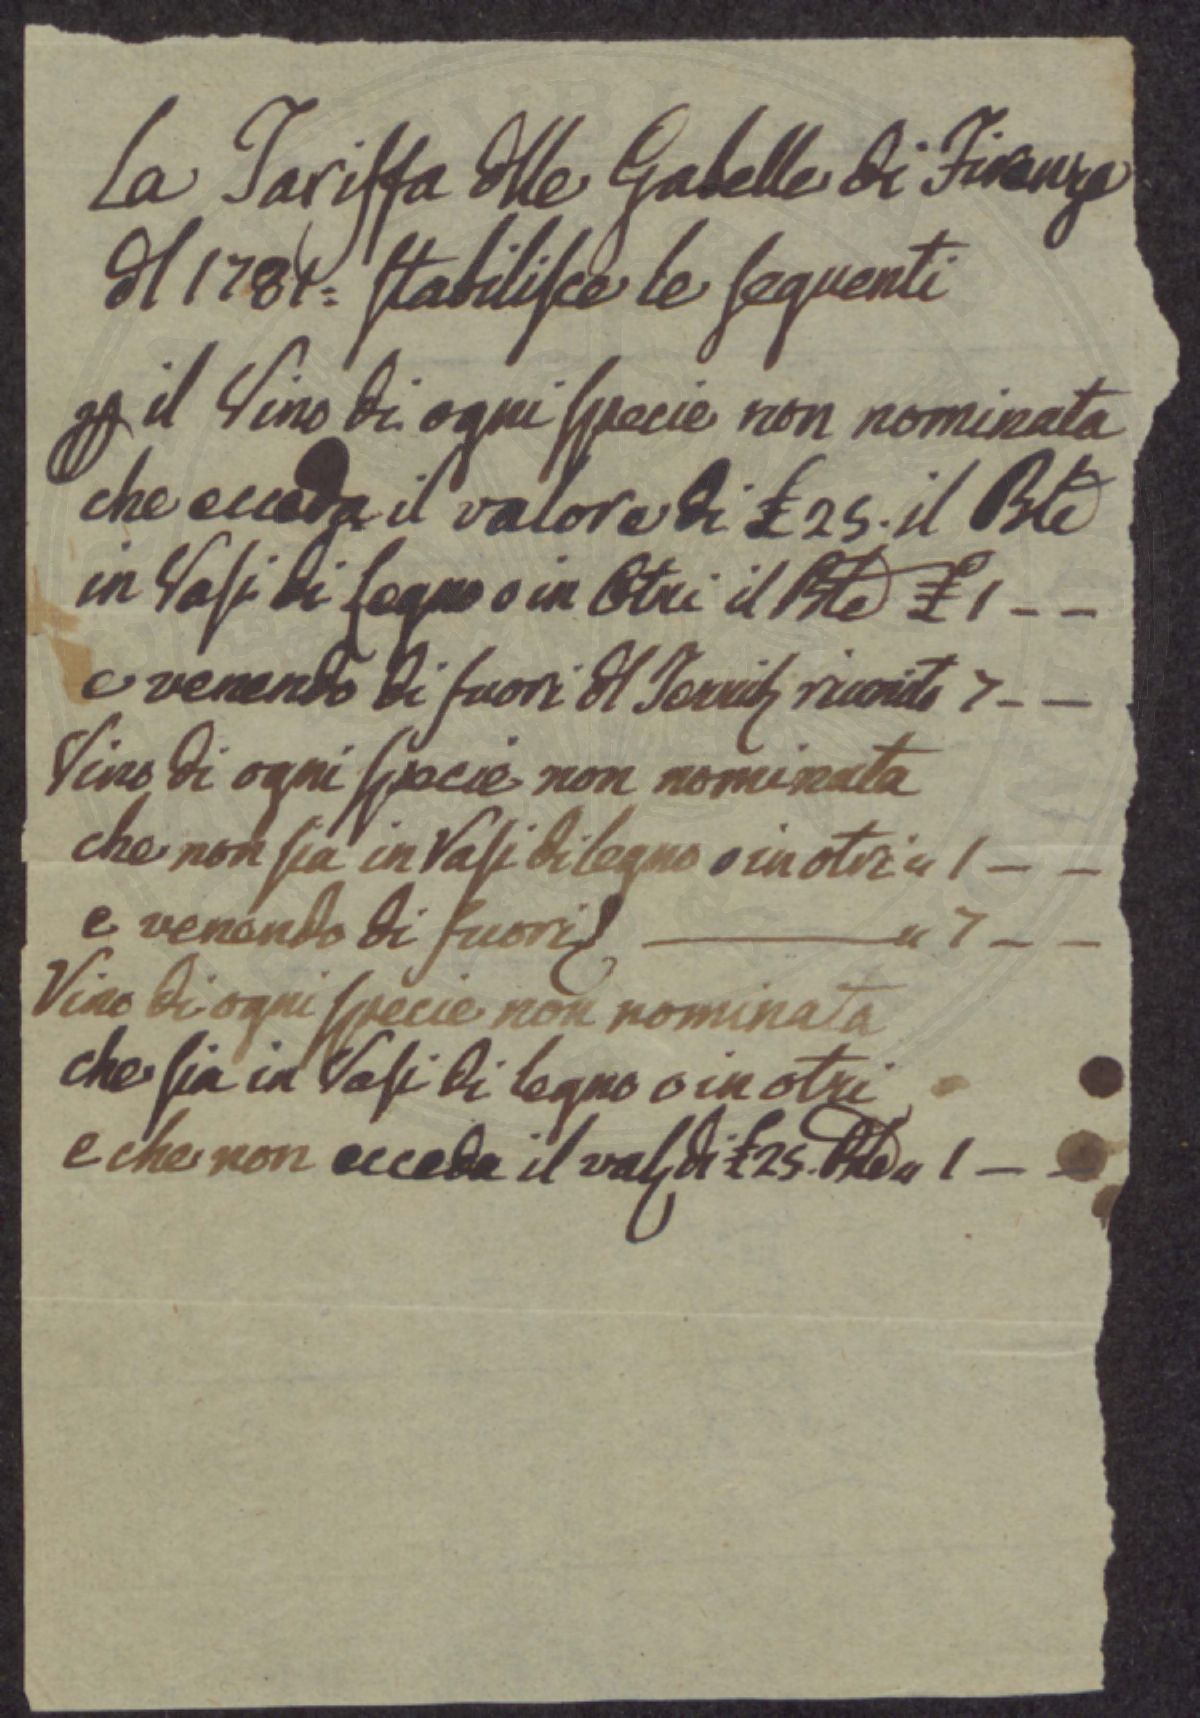 La Tariffa dlle Gabelle di Firenze
dl 1781= stabilisce le seguenti
p il Vino di ogni specie non nominata
che ecceda il valore di £ 25. il Ble
in Vasi di Legno o in Otri il Ble £ 1 - -
e venendo di fuori dl Territ riunito 7 - -
Vino di ogni specie non nominata
che non sia in Vasi di legno o in otri " 1 - -
e venendo di fuori " 7 - -
Vino di ogni specie non nominata
che sia in Vasi di legno o in otri
e che non ecceda il val di £ 25. Ble " 1 - -